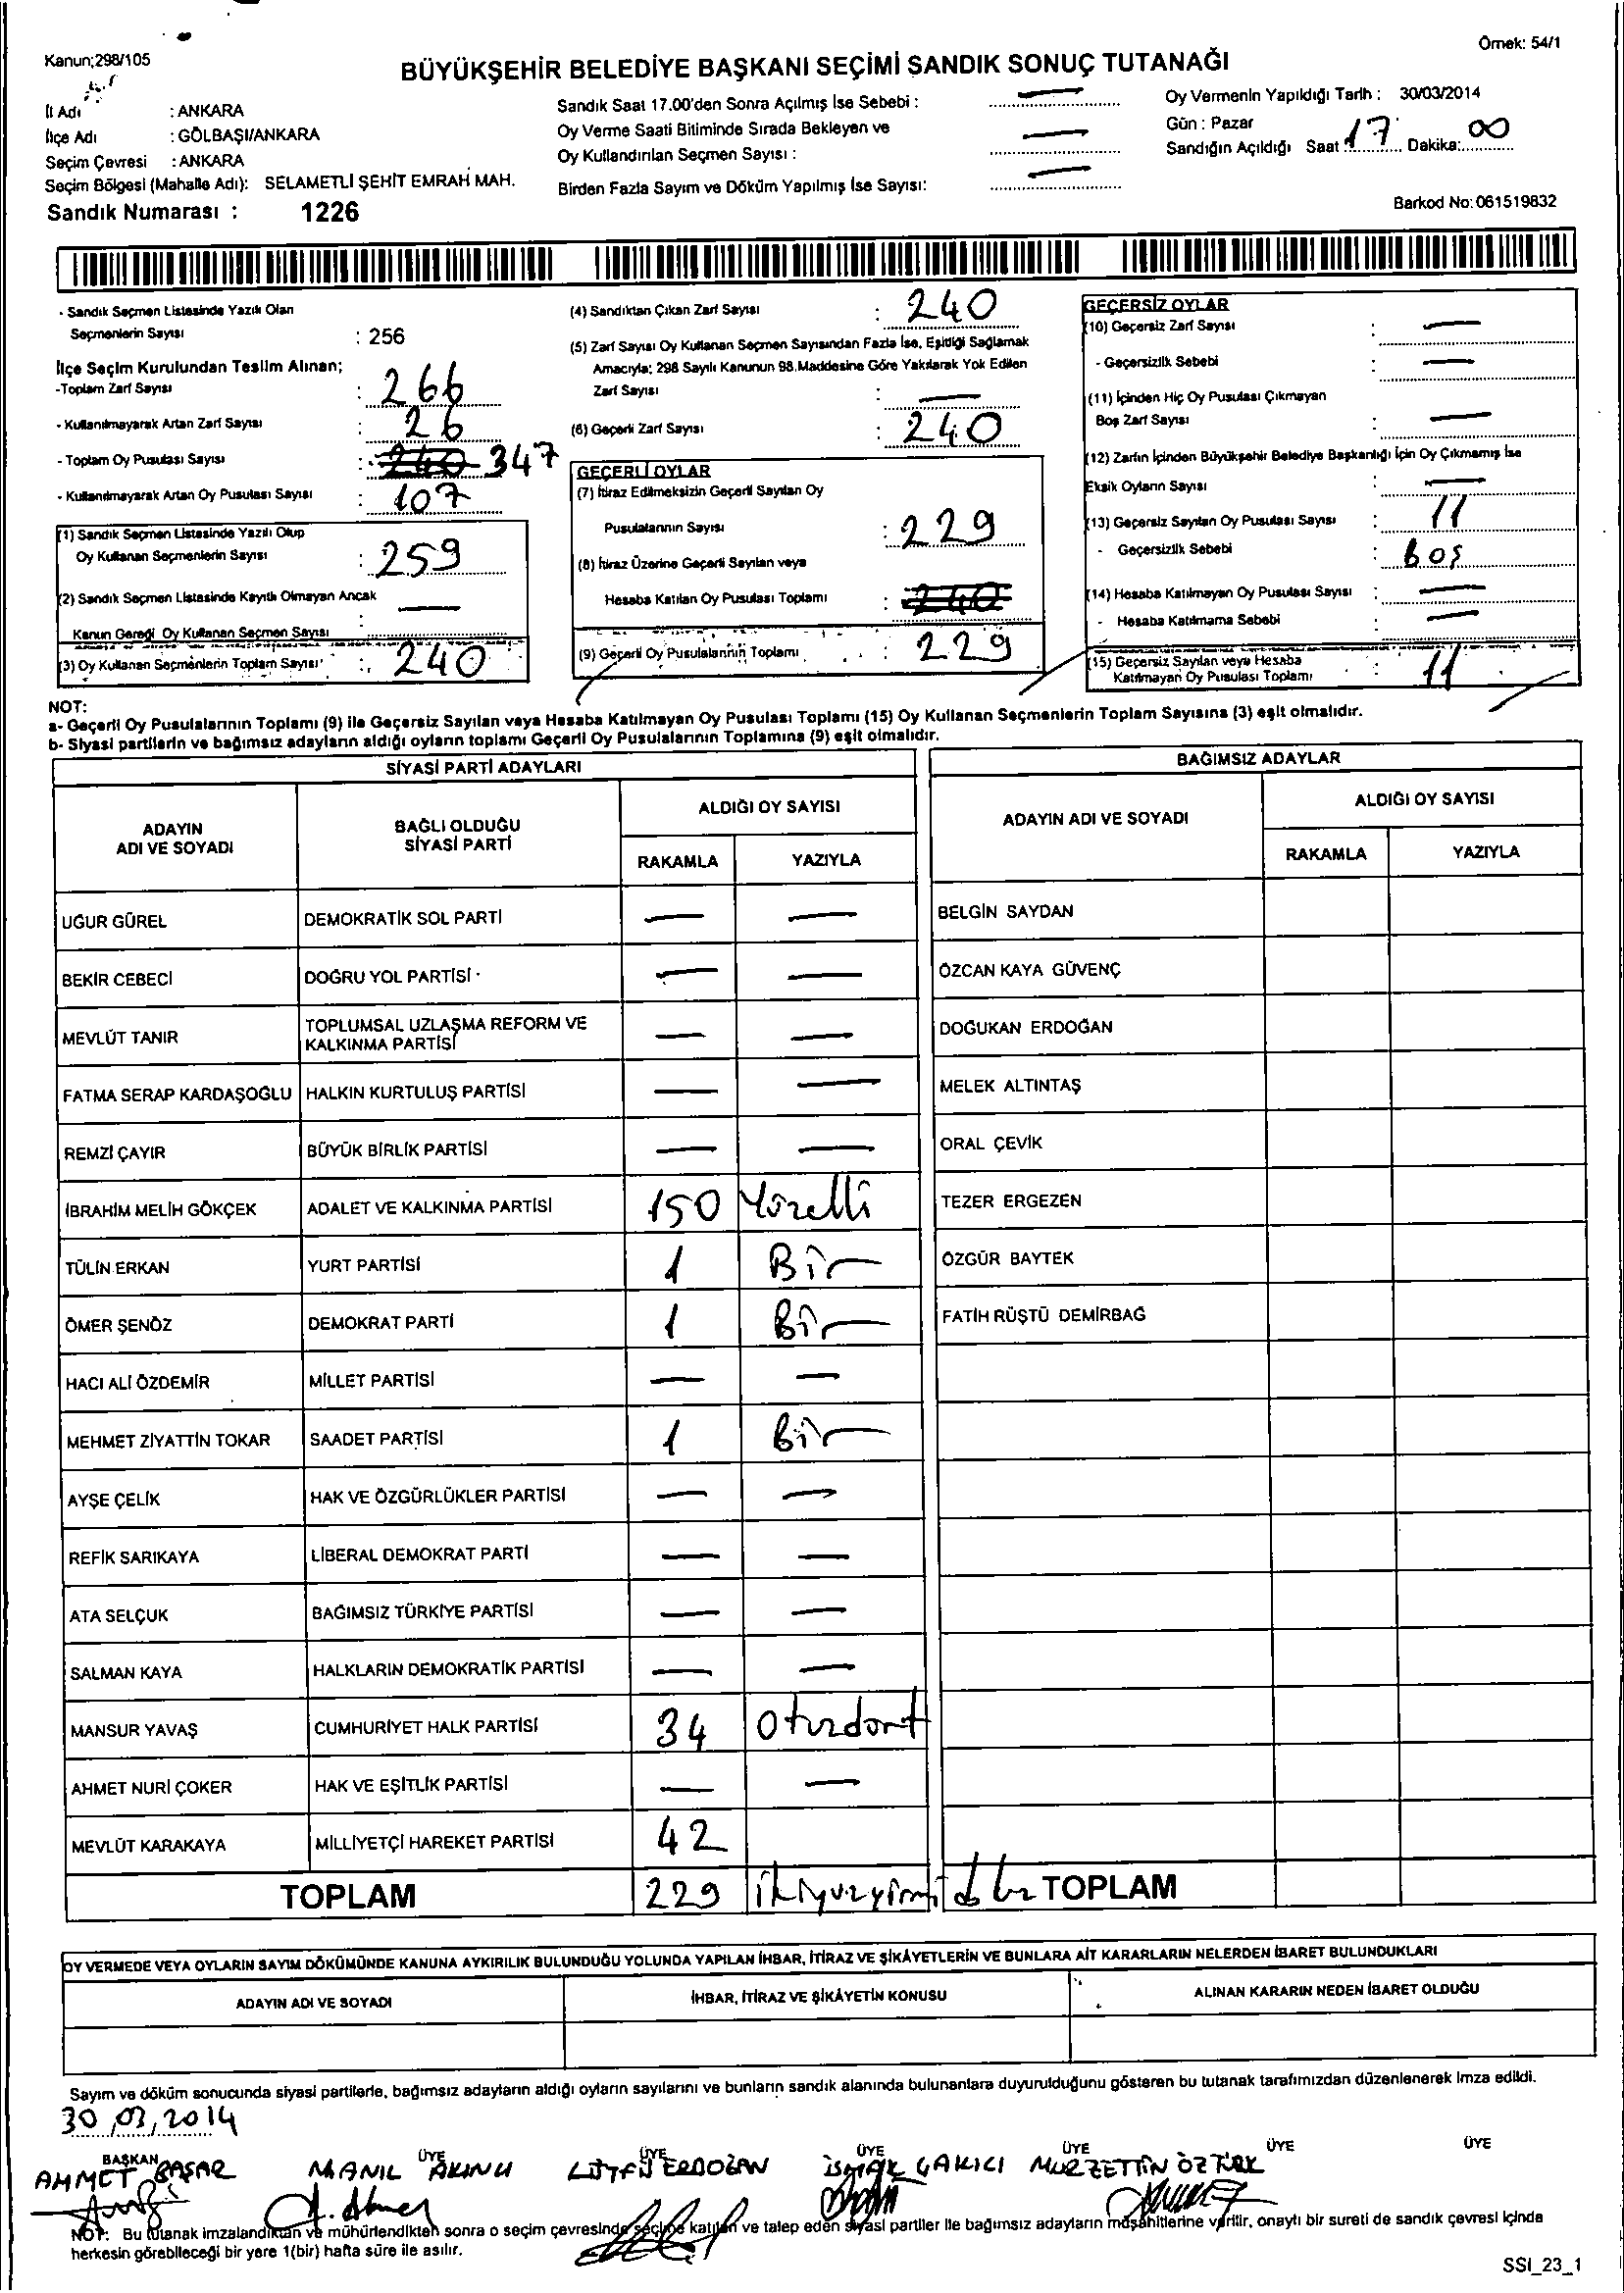 Kanun;298/105
Örnek: 54/1
BÜYÜKŞEHİR BELEDİYE BAŞKANI SEÇİMİ SANDIK SONUÇ TUTANAĞI
İl Adı : ANKARA
İlçe Adı : GÖLBAŞI/ANKARA
Seçim Çevresi : ANKARA
Seçim Bölgesi (Mahalle Adı): SELAMETLİ ŞEHİT EMRAH MAH.
Sandık Numarası : 1226
Sandık Saat 17.00'den Sonra Açılmış İse Sebebi : —
Oy Verme Saati Bitiminde Sırada Bekleyen ve
Oy Kullandırılan Seçmen Sayısı : —
Birden Fazla Sayım ve Döküm Yapılmış İse Sayısı: —
Oy Vermenin Yapıldığı Tarih : 30/03/2014
Gün : Pazar
Sandığın Açıldığı Saat 17 Dakika: 00
Barkod No: 061519832
- Sandık Seçmen Listesinde Yazılı Olan
Seçmenlerin Sayısı : 256
İlçe Seçim Kurulundan Teslim Alınan;
-Toplam Zarf Sayısı : 266
- Kullanılmayarak Artan Zarf Sayısı : 26
- Toplam Oy Pusulası Sayısı : 240 347
- Kullanılmayarak Artan Oy Pusulası Sayısı : 107
(1) Sandık Seçmen Listesinde Yazılı Olup
Oy Kullanan Seçmenlerin Sayısı : 259
(2) Sandık Seçmen Listesinde Kayıtlı Olmayan Ancak
Kanun Gereği Oy Kullanan Seçmen Sayısı : —
(3) Oy Kullanan Seçmenlerin Toplam Sayısı : 240
(4) Sandıktan Çıkan Zarf Sayısı : 240
(5) Zarf Sayısı Oy Kullanan Seçmen Sayısından Fazla İse, Eşitliği Sağlamak
Amacıyla; 298 Sayılı Kanunun 98.Maddesine Göre Yakılarak Yok Edilen
Zarf Sayısı : —
(6) Geçerli Zarf Sayısı : 240
GEÇERLİ OYLAR
(7) İtiraz Edilmeksizin Geçerli Sayılan Oy
Pusulalarının Sayısı : 229
(8) İtiraz Üzerine Geçerli Sayılan veya
Hesaba Katılan Oy Pusulası Toplamı : 240
(9) Geçerli Oy Pusulalarının Toplamı : 229
GEÇERSİZ OYLAR
(10) Geçersiz Zarf Sayısı : —
- Geçersizlik Sebebi : —
(11) İçinden Hiç Oy Pusulası Çıkmayan
Boş Zarf Sayısı : —
(12) Zarfın İçinden Büyükşehir Belediye Başkanlığı İçin Oy Çıkmamış İse
Eksik Oyların Sayısı : —
(13) Geçersiz Sayılan Oy Pusulası Sayısı : 11
- Geçersizlik Sebebi : boş
(14) Hesaba Katılmayan Oy Pusulası Sayısı : —
- Hesaba Katılmama Sebebi : —
(15) Geçersiz Sayılan veya Hesaba
Katılmayan Oy Pusulası Toplamı : 11
NOT:
a- Geçerli Oy Pusulalarının Toplamı (9) ile Geçersiz Sayılan veya Hesaba Katılmayan Oy Pusulası Toplamı (15) Oy Kullanan Seçmenlerin Toplam Sayısına (3) eşit olmalıdır.
b- Siyasi partilerin ve bağımsız adayların aldığı oyların toplamı Geçerli Oy Pusulalarının Toplamına (9) eşit olmalıdır.
SİYASİ PARTİ ADAYLARI
ADAYIN ADI VE SOYADI
BAĞLI OLDUĞU SİYASİ PARTİ
ALDIĞI OY SAYISI
RAKAMLA YAZIYLA
UĞUR GÜREL DEMOKRATİK SOL PARTİ — —
BEKİR CEBECİ DOĞRU YOL PARTİSİ — —
MEVLÜT TANIR TOPLUMSAL UZLAŞMA REFORM VE KALKINMA PARTİSİ — —
FATMA SERAP KARDAŞOĞLU HALKIN KURTULUŞ PARTİSİ — —
REMZİ ÇAYIR BÜYÜK BİRLİK PARTİSİ — —
İBRAHİM MELİH GÖKÇEK ADALET VE KALKINMA PARTİSİ 150 Yüzelli
TÜLİN ERKAN YURT PARTİSİ 1 Bir
ÖMER ŞENÖZ DEMOKRAT PARTİ 1 Bir
HACI ALİ ÖZDEMİR MİLLET PARTİSİ — —
MEHMET ZİYATTİN TOKAR SAADET PARTİSİ 1 Bir
AYŞE ÇELİK HAK VE ÖZGÜRLÜKLER PARTİSİ — —
REFİK SARIKAYA LİBERAL DEMOKRAT PARTİ — —
ATA SELÇUK BAĞIMSIZ TÜRKİYE PARTİSİ — —
SALMAN KAYA HALKLARIN DEMOKRATİK PARTİSİ — —
MANSUR YAVAŞ CUMHURİYET HALK PARTİSİ 34 Otuzdort
AHMET NURİ ÇOKER HAK VE EŞİTLİK PARTİSİ — —
MEVLÜT KARAKAYA MİLLİYETÇİ HAREKET PARTİSİ 42
TOPLAM 229
BAĞIMSIZ ADAYLAR
ADAYIN ADI VE SOYADI
ALDIĞI OY SAYISI
RAKAMLA YAZIYLA
BELGİN SAYDAN
ÖZCAN KAYA GÜVENÇ
DOĞUKAN ERDOĞAN
MELEK ALTINTAŞ
ORAL ÇEVİK
TEZER ERGEZEN
ÖZGÜR BAYTEK
FATİH RÜŞTÜ DEMİRBAĞ
TOPLAM
OY VERMEDE VEYA OYLARIN SAYIM DÖKÜMÜNDE KANUNA AYKIRILIK BULUNDUĞU YOLUNDA YAPILAN İHBAR, İTİRAZ VE ŞİKÂYETLERİN VE BUNLARA AİT KARARLARIN NELERDEN İBARET BULUNDUKLARI
ADAYIN ADI VE SOYADI
İHBAR, İTİRAZ VE ŞİKÂYETİN KONUSU
ALINAN KARARIN NEDEN İBARET OLDUĞU
Sayım ve döküm sonucunda siyasi partilerle, bağımsız adayların aldığı oyların sayılarını ve bunların sandık alanında bulunanlara duyurulduğunu gösteren bu tutanak tarafımızdan düzenlenerek imza edildi.
30,03,2014
BAŞKAN ÜYE ÜYE ÜYE ÜYE ÜYE ÜYE
AHMET BAŞAR LÜTFÜ ERDOĞAN ÇAKICI ÖZTÜRK
NOT: Bu tutanak imzalandıktan ve mühürlendikten sonra o seçim çevresinde seçime katılan ve talep eden siyasi partiler ile bağımsız adayların müşahitlerine verilir, onaylı bir sureti de sandık çevresi içinde
herkesin görebileceği bir yere 1(bir) hafta süre ile asılır.
SSI_23_1